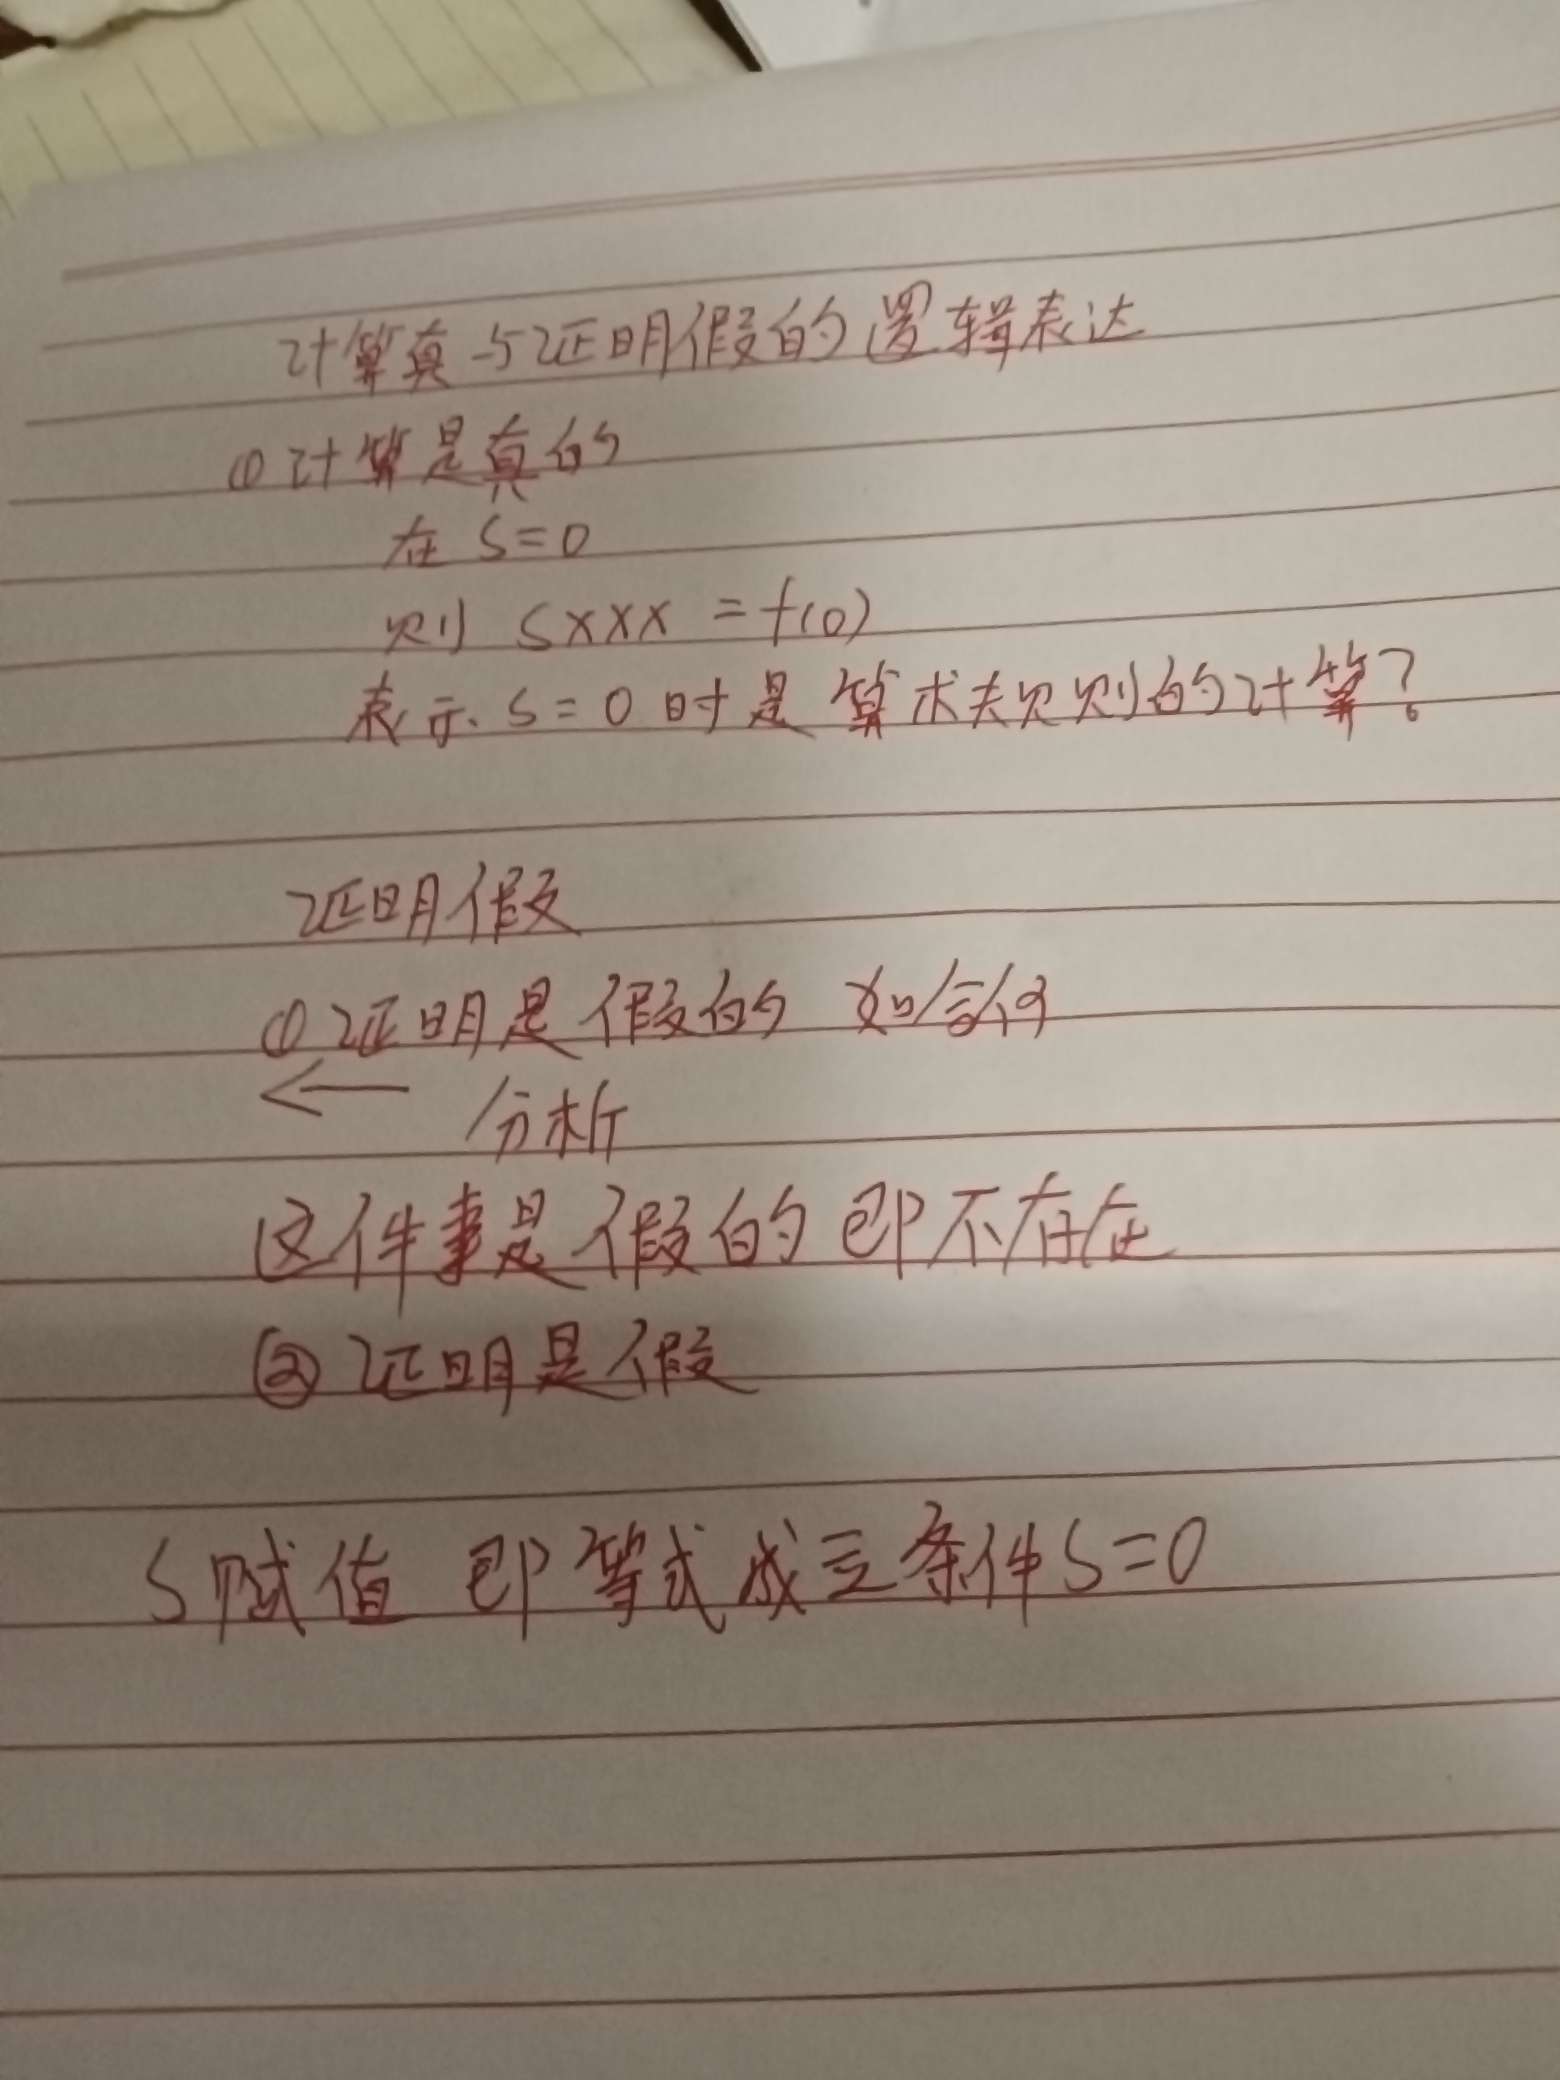 计算真与证明假的逻辑表达
① 计算是真的
在 S=0
则 S××× = f(0)
表示 S=0 时是算术规则的计算?
证明假
① 证明是假的 如何
← 分析
这件事是假的 即不存在
② 证明是假
S赋值 即等式成立条件S=0